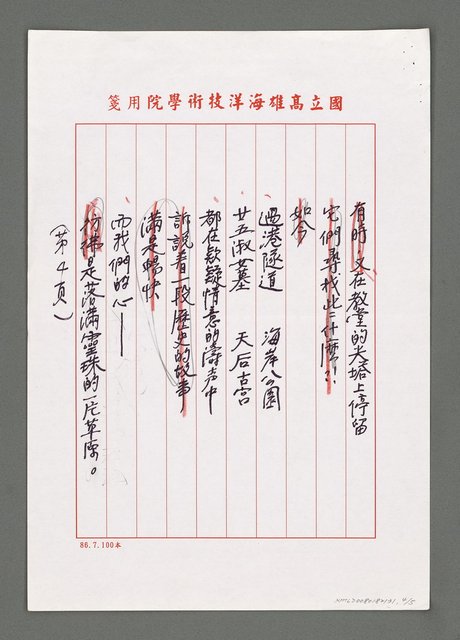 國立高雄海洋技術學院用箋
有時 又在教堂的尖塔上停留
它們尋找些什麼？
如今
過港隧道　海岸公園
廿五淑女墓　天后古宮
都在款款情意的濤声中
訴說着一段歷史的故事
滿是暢快
而我們的心——
彷彿是落滿露珠的一片草原。
（第4頁）
86.7.100本